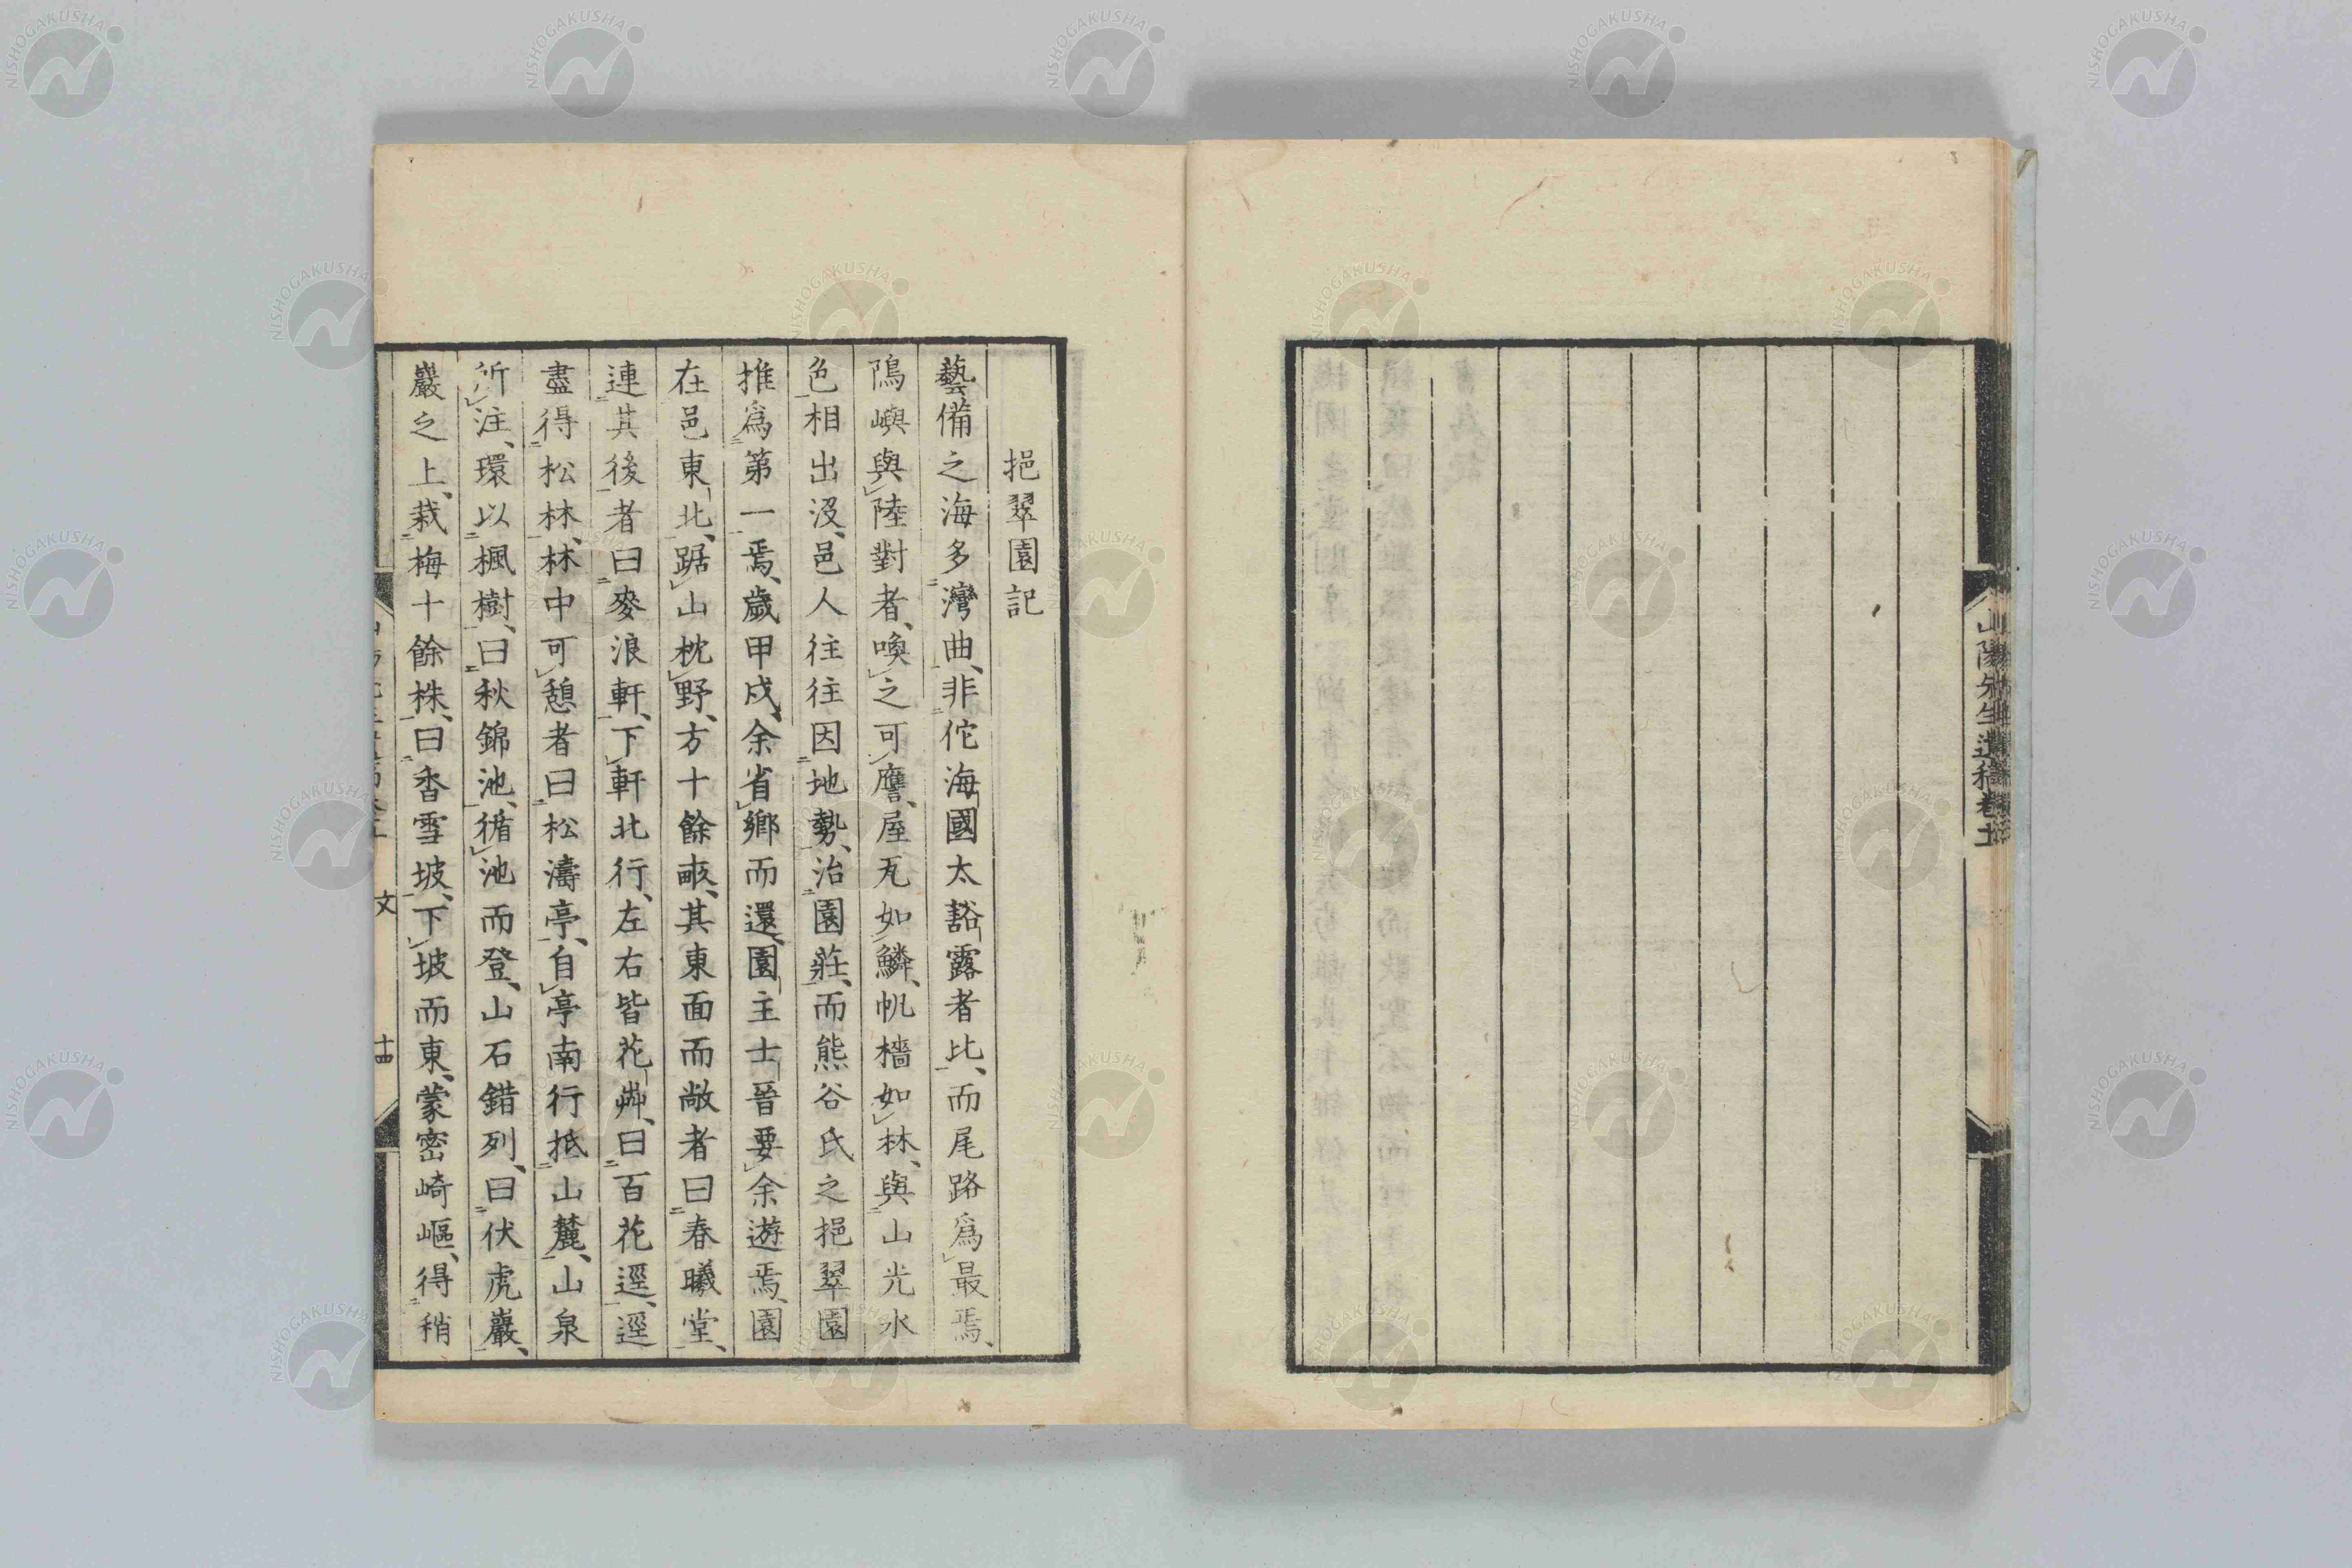 山陽先生遺稿卷十
挹翠園記
藝備之海多灣曲、非佗海國太豁露者比、而尾路爲最焉、
隝嶼與陸對者、喚之可譍、屋瓦如鱗、帆檣如林、與山光水
色相出沒、邑人往往因地勢、治園莊、而熊谷氏之挹翠園
推爲第一焉、歲甲戍、余省鄉而還、園主士晉要余遊焉、園
在邑東北、踞山枕野、方十餘畝、其東面而敞者曰春曦堂、
連其後者曰麥浪軒、下軒北行、左右皆花艸、曰百花逕、逕
盡得松林、林中可憩者曰松濤亭、自亭南行抵山麓、山泉
所注、環以楓樹、曰秋錦池、循池而登、山石錯列、曰伏虎巖、
巖之上、栽梅十餘株、曰香雪坡、下坡而東、蒙密崎嶇、得稍
文
十四
NISHOGAKUSHA